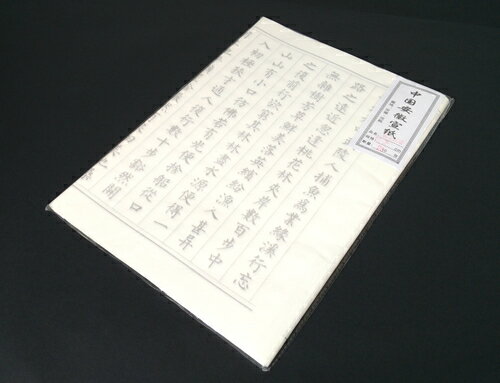 中国安徽宣紙
陵人捕魚為業緣溪行忘
路之遠近忽逢桃花林夾岸數百步中
無雜樹芳草鮮美落英繽紛漁人甚異
之復前行欲窮其林林盡水源便得一
山山有小口彷彿若有光便捨船從口
入初極狹才通人復行數十步豁然開